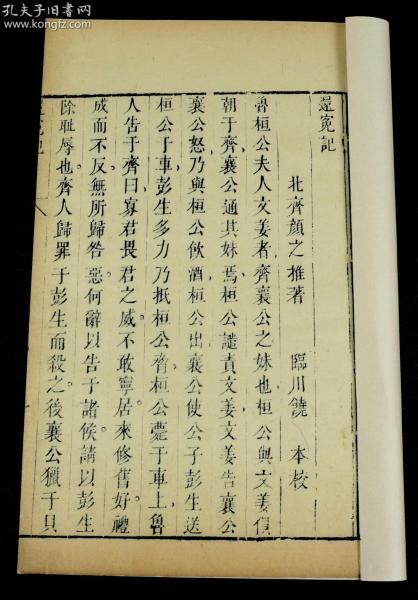 孔夫子旧书网
www.kongfz.com
還冤記
北齊顏之推著 臨川饒 本校
魯桓公夫人文姜者齊襄公之妹也桓公與文姜俱
朝于齊襄公通其妹焉桓公譴責文姜文姜告襄公
襄公怒乃與桓公飲酒桓公出襄公使公子彭生送
桓公于車彭生多力乃抵桓公脅桓公薨于車上魯
人告于齊曰寡君畏君之威不敢寧居來修舊好禮
成而不反無所歸咎惡何辭以告于諸侯請以彭生
除耻辱也齊人歸罪于彭生而殺之後襄公獵于貝